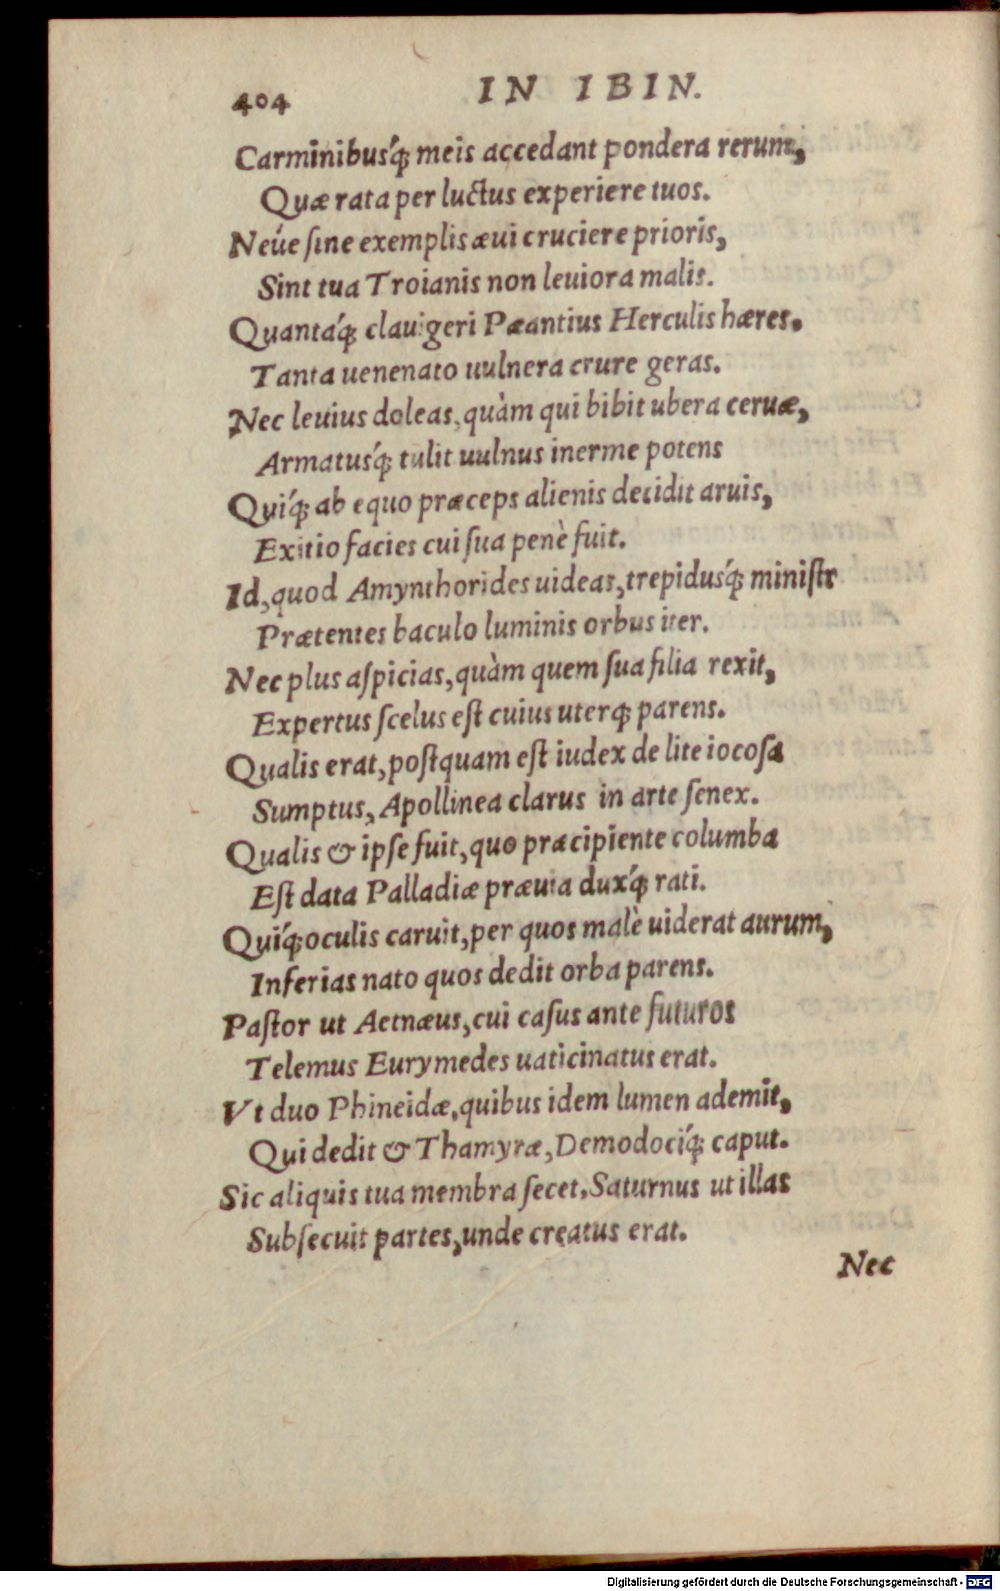 404
IN IBIN.
Carminibusq́; meis accedant pondera rerum,
Quæ rata per luctus experiere tuos.
Neúe ſine exemplis æui cruciere prioris,
Sint tua Troianis non leuiora malis.
Quantáq́; clauigeri Pæantius Herculis hæres,
Tanta uenenato uulnera crure geras.
Nec leuius doleas, quàm qui bibit ubera ceruæ,
Armatusq́; tulit uulnus inerme potens
Quiq́; ab equo præceps alienis decidit aruis,
Exitio facies cui ſua penè fuit.
Id, quod Amynthorides uideas, trepidusq́; miniſtr
Prætentes baculo luminis orbus iter.
Nec plus aſpicias, quàm quem ſua filia rexit,
Expertus ſcelus eſt cuius uterq; parens.
Qualis erat, poſtquam eſt iudex de lite iocoſa
Sumptus, Apollinea clarus in arte ſenex.
Qualis & ipſe fuit, quo præcipiente columba
Eſt data Palladiæ præuia duxq́; rati.
Quiq́; oculis caruit, per quos malè uiderat aurum,
Inferias nato quos dedit orba parens.
Paſtor ut Aetnæus, cui caſus ante futuros
Telemus Eurymedes uaticinatus erat.
Vt duo Phineidæ, quibus idem lumen ademit,
Qui dedit & Thamyræ, Demodociq́; caput.
Sic aliquis tua membra ſecet, Saturnus ut illas
Subſecuit partes, unde creatus erat.
Nec
Digitalisierung gefördert durch die Deutsche Forschungsgemeinschaft - DFG